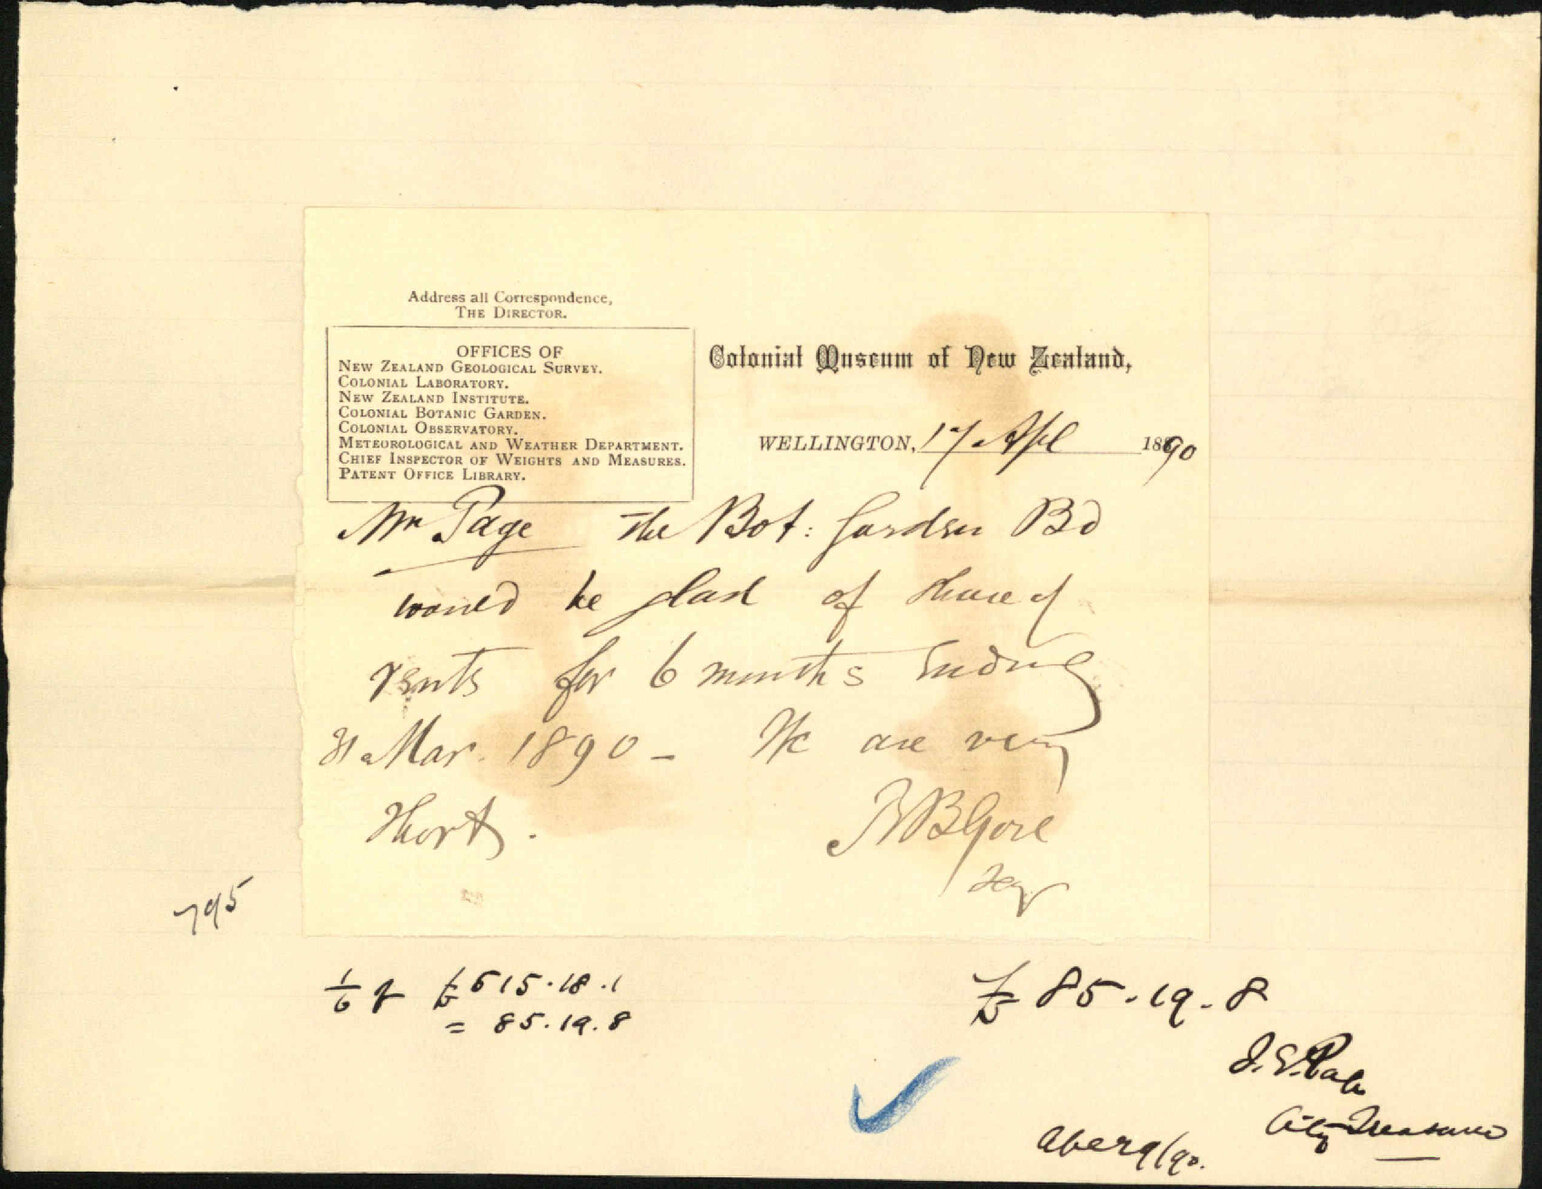 Address all Correspondence,
THE DIRECTOR.
OFFICES OF
NEW ZEALAND GEOLOGICAL SURVEY.
COLONIAL LABORATORY.
NEW ZEALAND INSTITUTE.
COLONIAL BOTANIC GARDEN.
COLONIAL OBSERVATORY.
METEOROLOGICAL AND WEATHER DEPARTMENT.
CHIEF INSPECTOR OF WEIGHTS AND MEASURES.
PATENT OFFICE LIBRARY.
Colonial Museum of New Zealand,
WELLINGTON, 17 Apl 1890
Mr Page The Bot: Garden Bd
would be glad of share of
rents for 6 months ending
31 Mar. 1890 - We are very
short.
RB Gore
795
1/6 of £515.18.1
= 85.19.8
£85.19.8
J.E. Page
City Treasurer